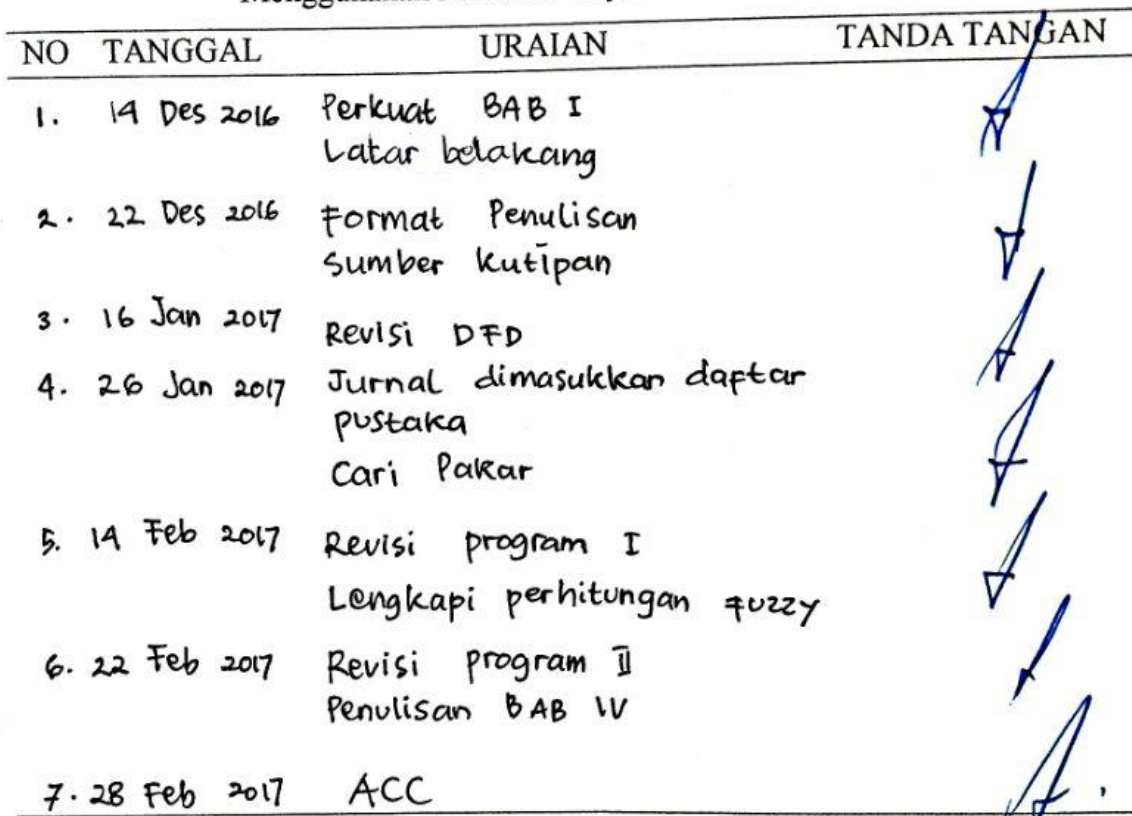 Menggunakan
NO TANGGAL URAIAN TANDA TANGAN
1. 14 Des 2016 Perkuat BAB I
Latar belakang
2. 22 Des 2016 Format Penulisan
Sumber kutipan
3. 16 Jan 2017 Revisi DFD
4. 26 Jan 2017 Jurnal dimasukkan daftar
pustaka
Cari Pakar
5. 14 Feb 2017 Revisi program I
Lengkapi perhitungan fuzzy
6. 22 Feb 2017 Revisi program II
Penulisan BAB IV
7. 28 Feb 2017 ACC